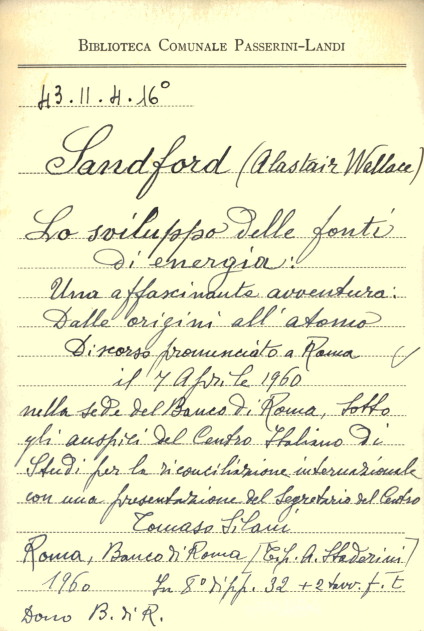 BIBLIOTECA COMUNALE PASSERINI-LANDI
43.II.4.16°
Sandford (Alastair Wallace)
Lo sviluppo delle fonti
di energia:
Una affascinante avventura:
Dalle origini all'atomo
Discorso pronunciato a Roma
il 7 Aprile 1960
nella sede del Banco di Roma, sotto
gli auspici del Centro Italiano di
Studi per la riconciliazione internazionale
con una presentazione del Segretario del Centro
Tomaso Silani
Roma, Banco di Roma [Tip. A. Staderini]
1960 In 8° di pp. 32 + 2 tavv. f. t.
Dono B. di R.